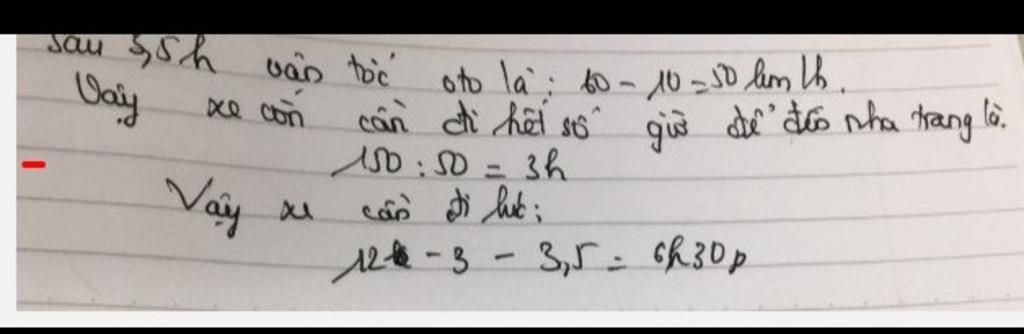 sau 3,5h vận tốc oto là: 60 - 10 = 50 km/h.
Vậy xe còn cần đi hết số giờ để đến nha trang là.
150 : 50 = 3h
Vậy xe cần đi lúc:
12h - 3 - 3,5 = 6h30p